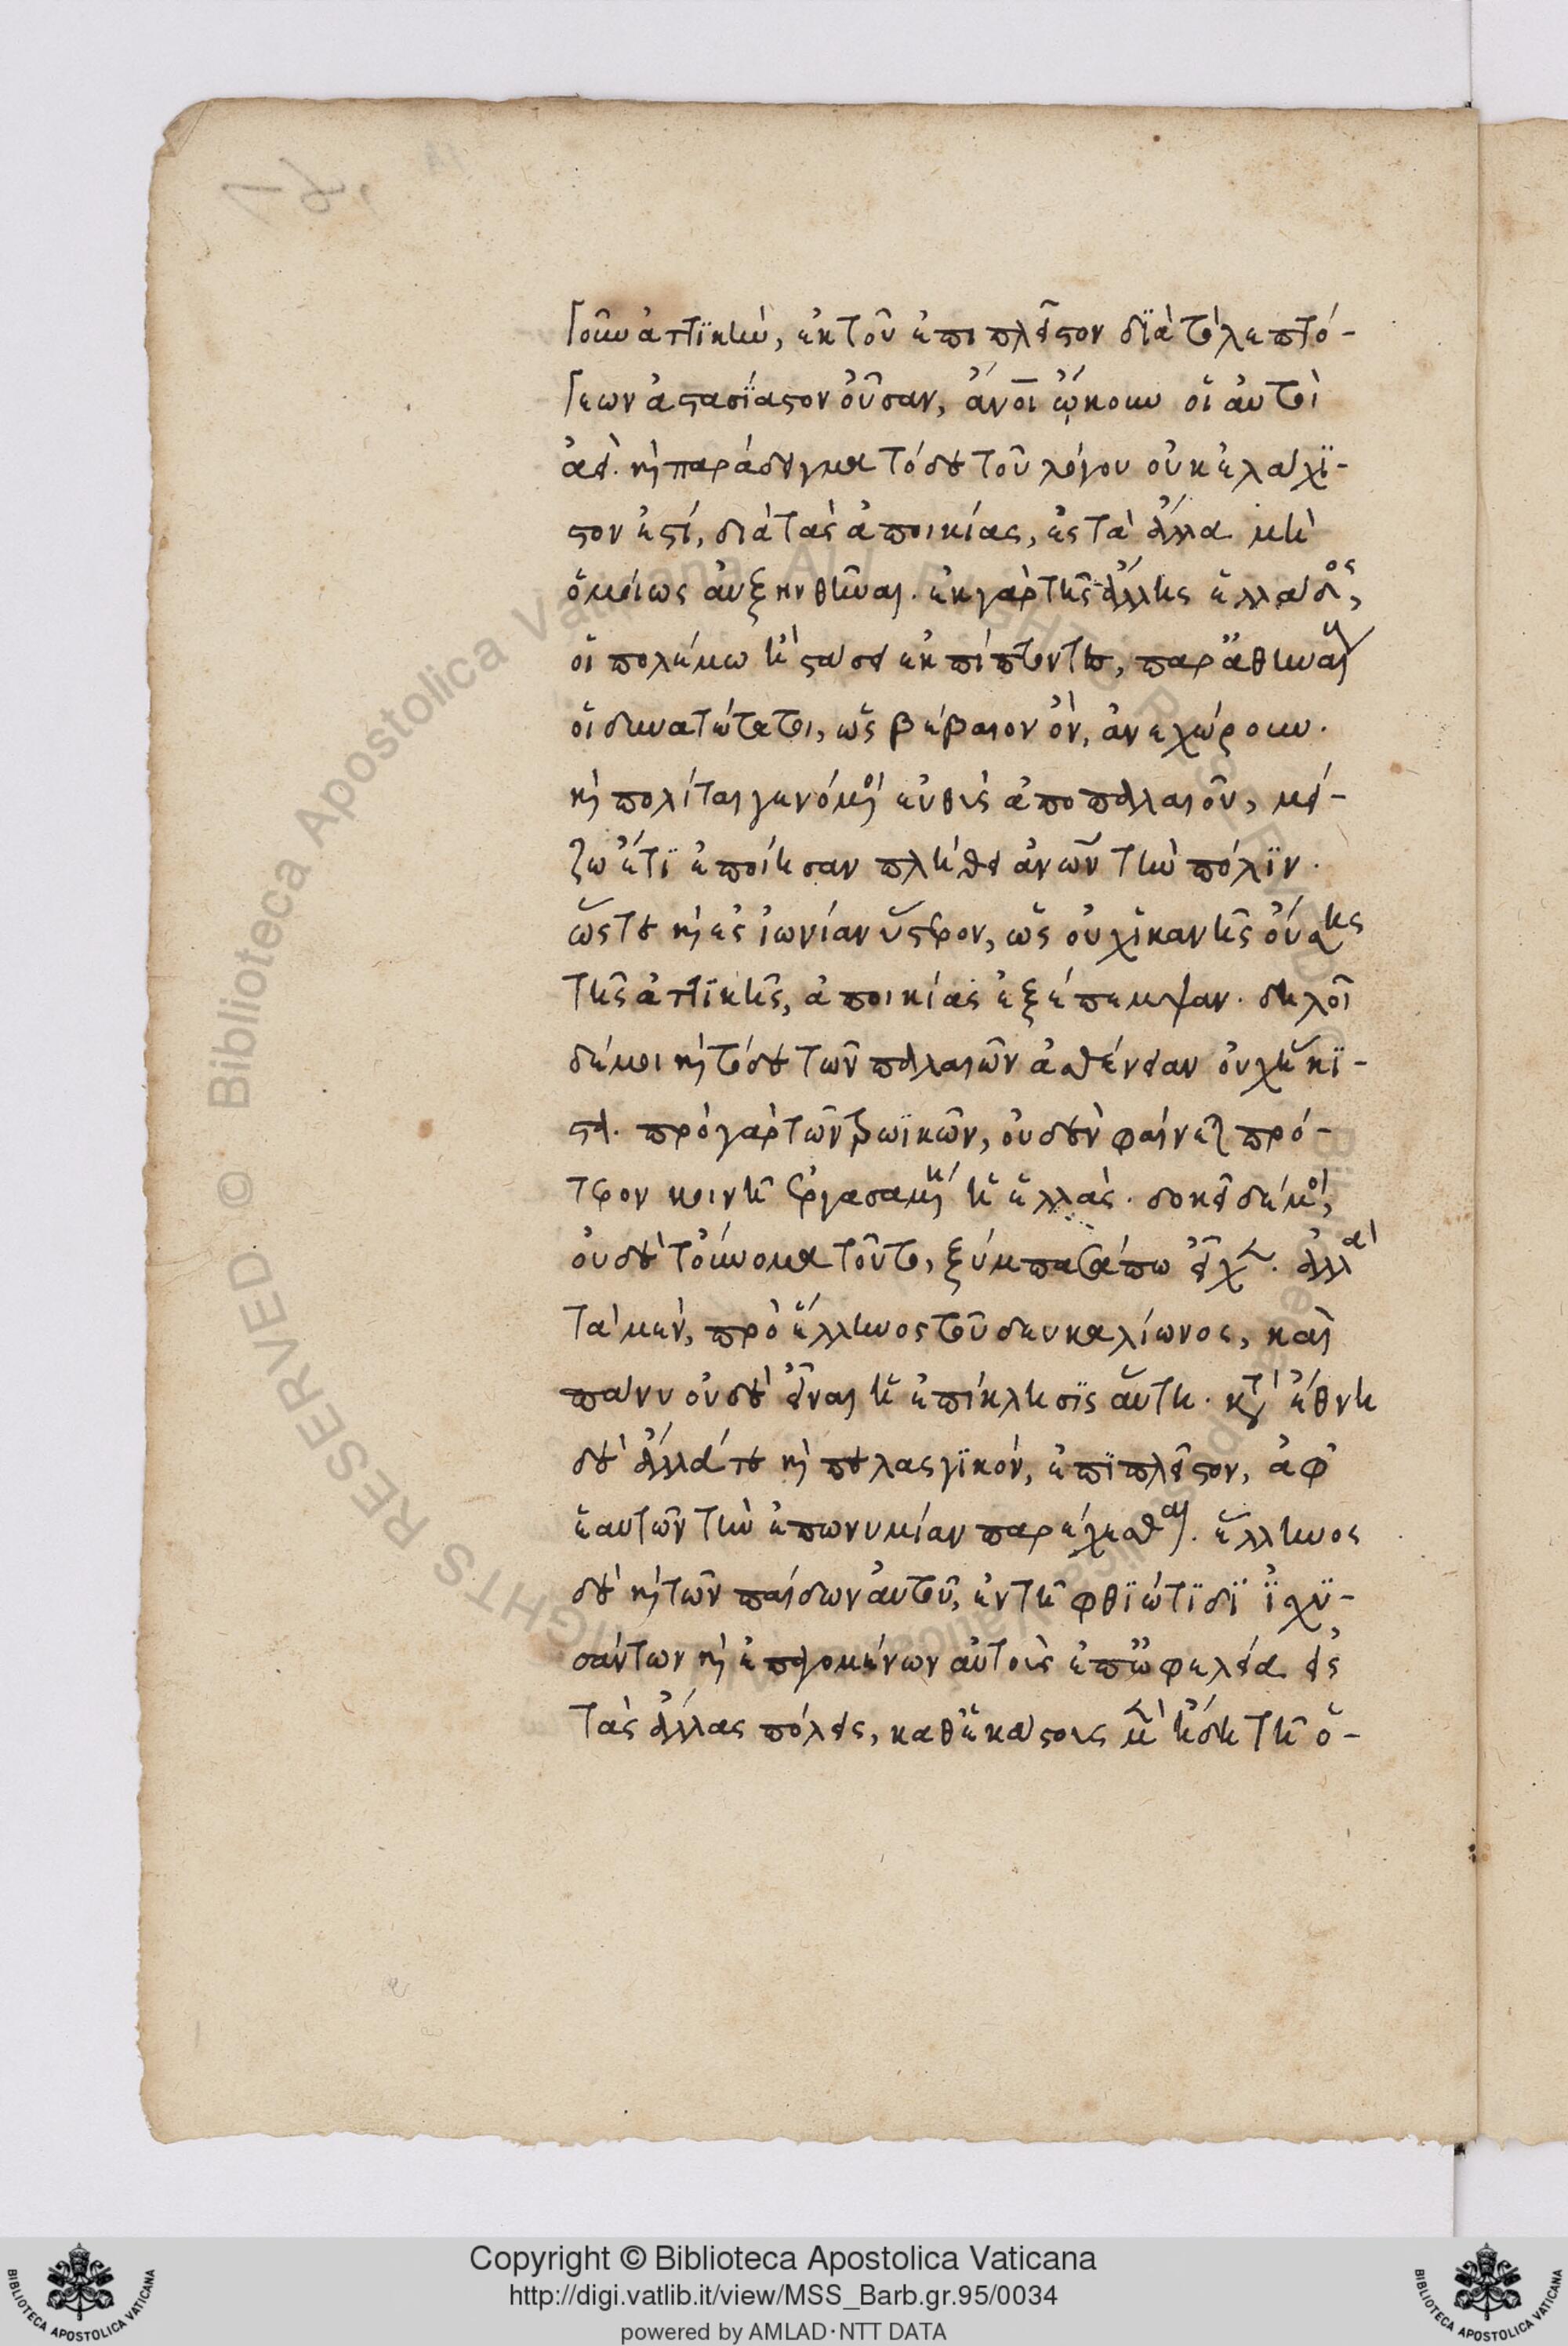 γοῦν ἀττϊκὴν, ἐκ τοῦ ἐπιπλεῖστον δϊὰ τὸ λεπτό-
γεων ἀστασίαστον οὖσαν, ἄνοι ὤκουν οἱ αὐτοὶ
ἀεί. καὶ παράδειγμα τόδε τοῦ λόγου οὐκ ἐλάχϊ-
στον ἐστί, διὰ τὰς ἀποικίας, ἐς τὰ ἄλλα μὴ
ὁμοίως αὐξηνθῆναι. ἐκ γὰρ τῆς ἄλλης ἑλλάδος,
οἱ πολέμω ἢ στάσει ἐκπίπτοντες, παρ' ἀθηναίων
οἱ δυνατώτατοι, ὡς βέβαιον ὂν, ἀνεχώρουν.
καὶ πολίται γενόμενοι εὐθὺς ἀπὸ παλαιοῦ, μεί-
ζω ἔτϊ ἐποίησαν πλήθει ἀνων τὴν πόλϊν.
ὥστε καὶ ἐς ἰωνίαν ὕστερον, ὡς οὐχ ἱκανῆς οὔσης
τῆς ἀττϊκῆς, ἀποικίας ἐξέπεμψαν. δηλοῖ
δέ μοι καὶ τόδε τῶν παλαιῶν ἀσθένειαν οὐχ ἥκϊ-
στα. πρὸ γὰρ τῶν τρωϊκῶν, οὐδὲν φαίνεται πρό-
τερον κοινῆ ἐργασαμένη ἡ ἑλλάς. δοκεῖ δέ μοι,
οὐδὲ τοὔνομα τοῦτο, ξύμπασά πω εἶχεν. ἀλλὰ
τὰ μὲν, πρὸ ἕλληνος τοῦ δευκαλίωνος, καὶ
πάνυ οὐδὲ εἶναι ἡ ἐπίκλησϊς αὕτη. κατὰ ἔθνη
δὲ ἄλλά τε καὶ πελασγϊκόν, ἐπϊπλεῖστον, ἀφ'
ἑαυτῶν τὴν ἐπωνυμίαν παρέχεσθαι. ἕλληνος
δὲ καὶ τῶν παίδων αὐτοῦ, ἐν τῆ φθϊώτϊδϊ ἰσχϋ-
σάντων καὶ ἐπαγομένων αὐτοὺς ἐπ' ὠφελεία εἰς
τὰς ἄλλας πόλεις, καθ' ἑκάστους μὲν ἤδη τῆ ὁ-
Copyright © Biblioteca Apostolica Vaticana
http://digi.vatlib.it/view/MSS_Barb.gr.95/0034
powered by AMLAD·NTT DATA